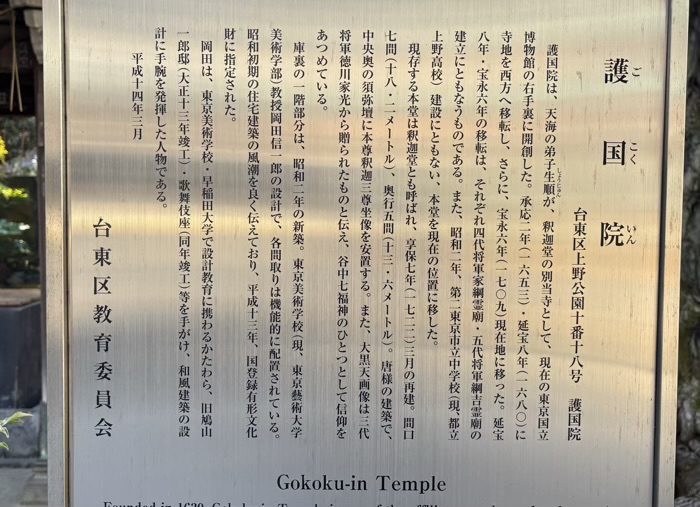 護国院
ご こく いん
台東区上野公園十番十八号 護国院
護国院は、天海の弟子生順が、釈迦堂の別当寺として、現在の東京国立
しょうじゅん
博物館の右手裏に開創した。承応二年(一六五三)・延宝八年(一六八〇)に
寺地を西方へ移転し、さらに、宝永六年(一七〇九)現在地に移った。延宝
八年・宝永六年の移転は、それぞれ四代将軍家綱霊廟・五代将軍綱吉霊廟の
建立にともなうものである。また、昭和二年、第二東京市立中学校(現、都立
上野高校)建設にともない、本堂を現在の位置に移した。
現存する本堂は釈迦堂とも呼ばれ、享保七年(一七二二)三月の再建。間口
七間(十八・二メートル)、奥行五間(十三・六メートル)。唐様の建築で、
中央奥の須弥壇に本尊釈迦三尊坐像を安置する。また、大黒天画像は三代
将軍徳川家光から贈られたものと伝え、谷中七福神のひとつとして信仰を
あつめている。
庫裏の一階部分は、昭和二年の新築。東京美術学校(現、東京藝術大学
美術学部)教授岡田信一郎の設計で、各間取りは機能的に配置されている。
昭和初期の住宅建築の風潮を良く伝えており、平成十三年、国登録有形文化
財に指定された。
岡田は、東京美術学校・早稲田大学で設計教育に携わるかたわら、旧鳩山
一郎邸(大正十三年竣工)・歌舞伎座(同年竣工)等を手がけ、和風建築の設
計に手腕を発揮した人物である。
平成十四年三月
台東区教育委員会
Gokoku-in Temple